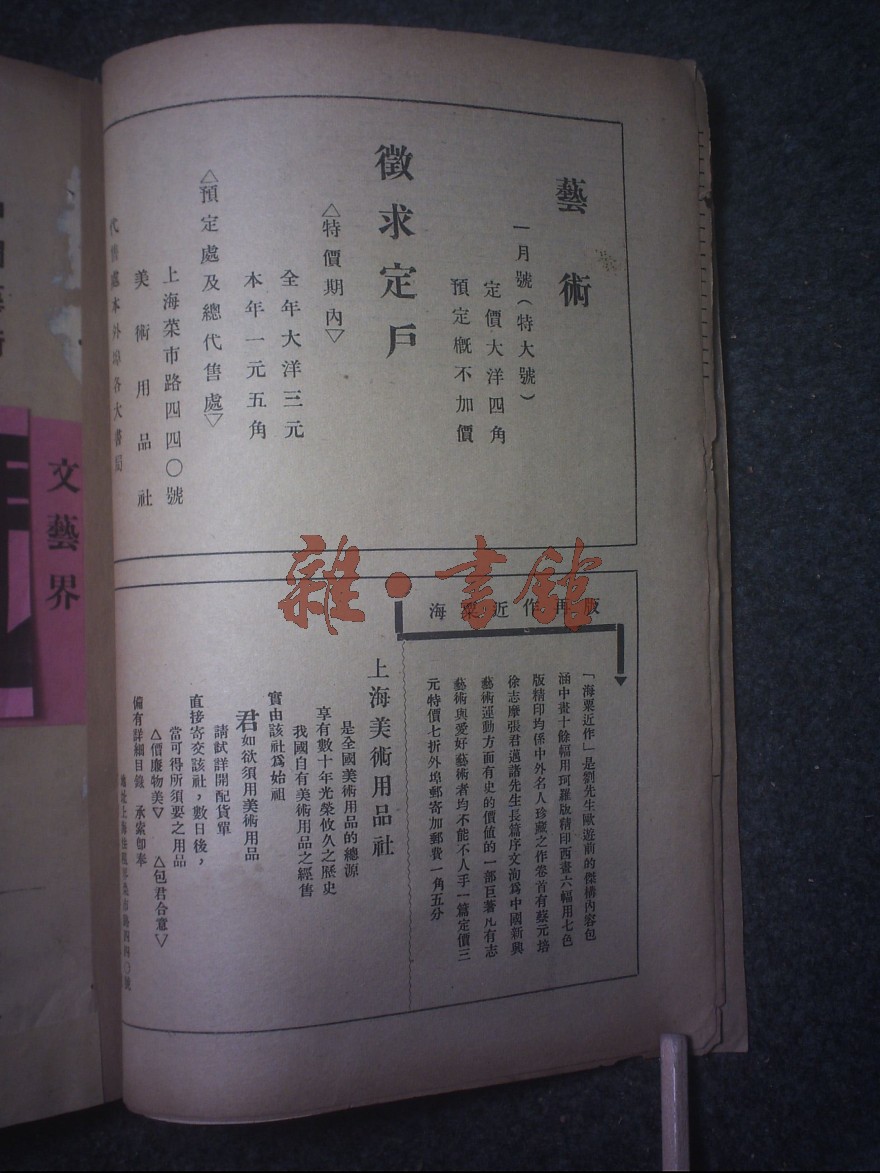 藝術
一月號(特大號)
定價大洋四角
預定概不加價
徵求定戶
△特價期內▽
全年大洋三元
本年一元五角
△預定處及總代售處▽
上海菜市路四四〇號
美術用品社
代售處本外埠各大書局
海粟近作再版
「海粟近作」是劉先生歐遊前的傑構內容包
涵中畫十餘幅用珂羅版精印西畫六幅用七色
版精印均係中外名人珍藏之作卷首有蔡元培
徐志摩張君邁諸先生長篇序文洵爲中國新興
藝術運動方面有史的價値的一部巨著凡有志
藝術與愛好藝術者均不能不人手一篇定價三
元特價七折外埠郵寄加郵費一角五分
上海美術用品社
是全國美術用品的總源
享有數十年光榮攸久之歷史
我國自有美術用品之經售
實由該社爲始祖
君如欲須用美術用品
請試詳開配貨單
直接寄交該社，數日後，
當可得所須要之用品
△價廉物美▽ △包君合意▽
備有詳細目錄 承索卽奉
文藝界
雜·書館